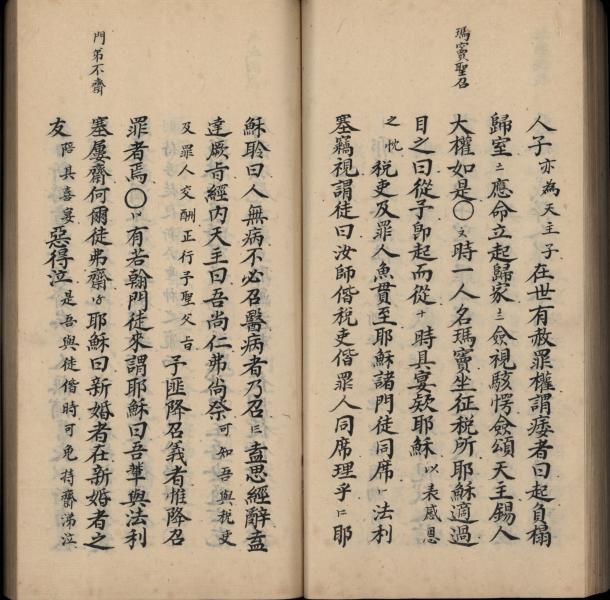 瑪竇聖召
人子亦為天主子在世有赦罪權謂痿者曰起負榻
歸室〧應命立起歸家〨僉視駭愕僉頌天主錫人
大權如是〇〩時一人名瑪竇坐征税所耶穌適過
目之曰從予卽起而從十時具宴欵耶穌以表感恩
之忱税吏及罪人魚貫至耶穌諸門徒同席法利
塞竊視謂徒曰汝師偕税吏偕罪人同席理乎耶
門弟不齋
穌聆曰人無病不必召醫病者乃召盍思經辭盍
達厥旨經内天主曰吾尚仁弗尚祭可知吾與税吏
及罪人交酬正行予聖父旨予匪降召義者惟降召
罪者焉〇有若翰門徒來謂耶穌曰吾輩與法利
塞屢齋何爾徒弗齋耶穌曰新婚者在新婚者之
友陪具喜宴惡得泣是吾與徒偕時可免持齋涕泣